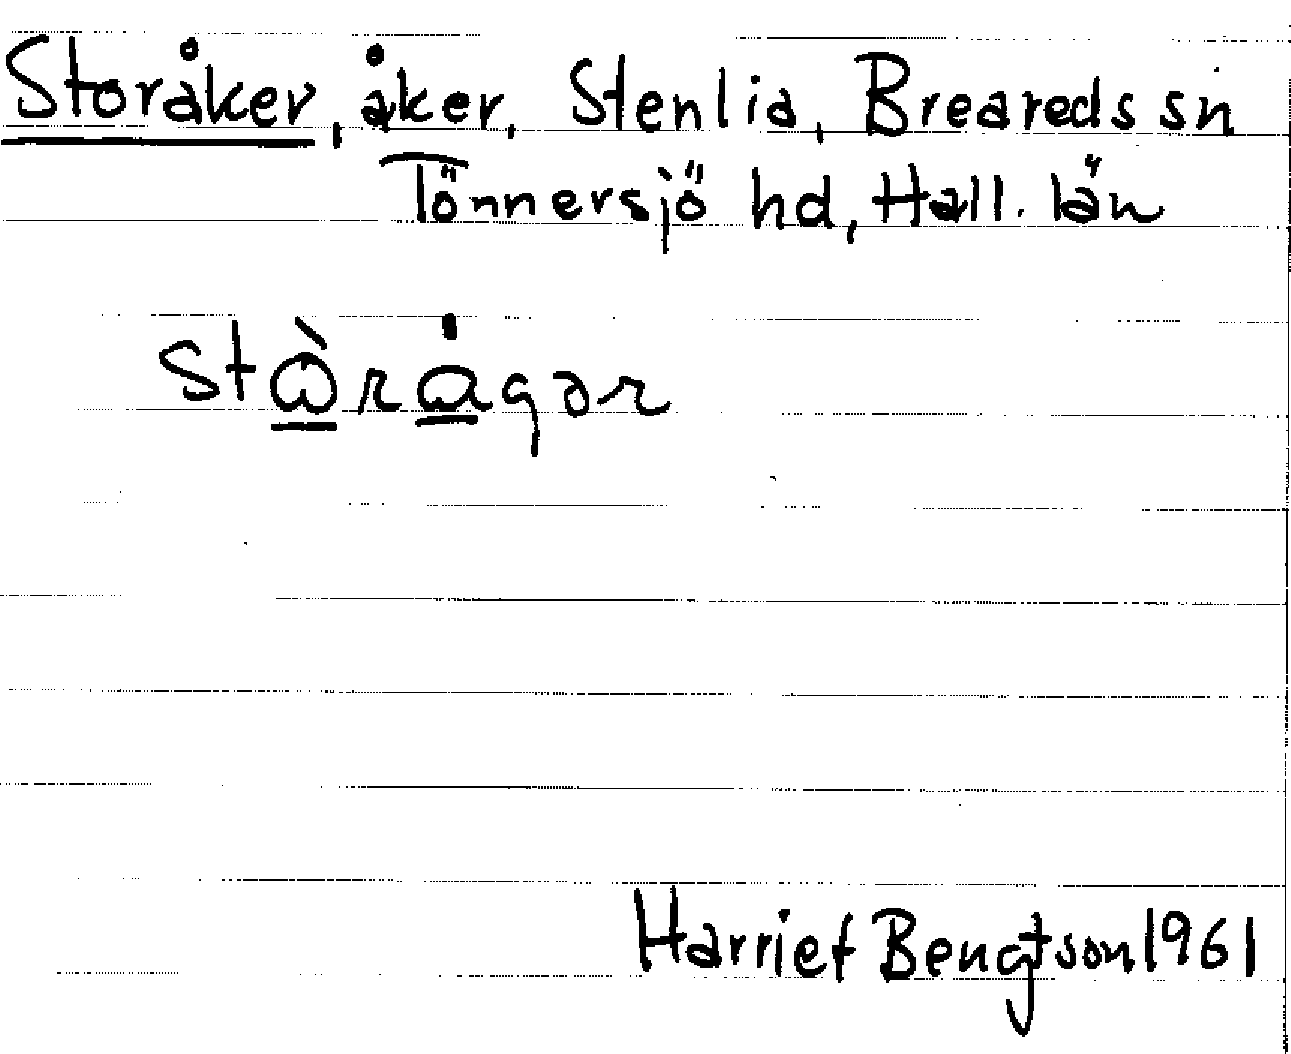 Storåker, åker, Stenlia, Breareds sn
Tönnersjö hd, Hall. län
stὼ̲rȧ̲gər
Harriet Bengtson 1961